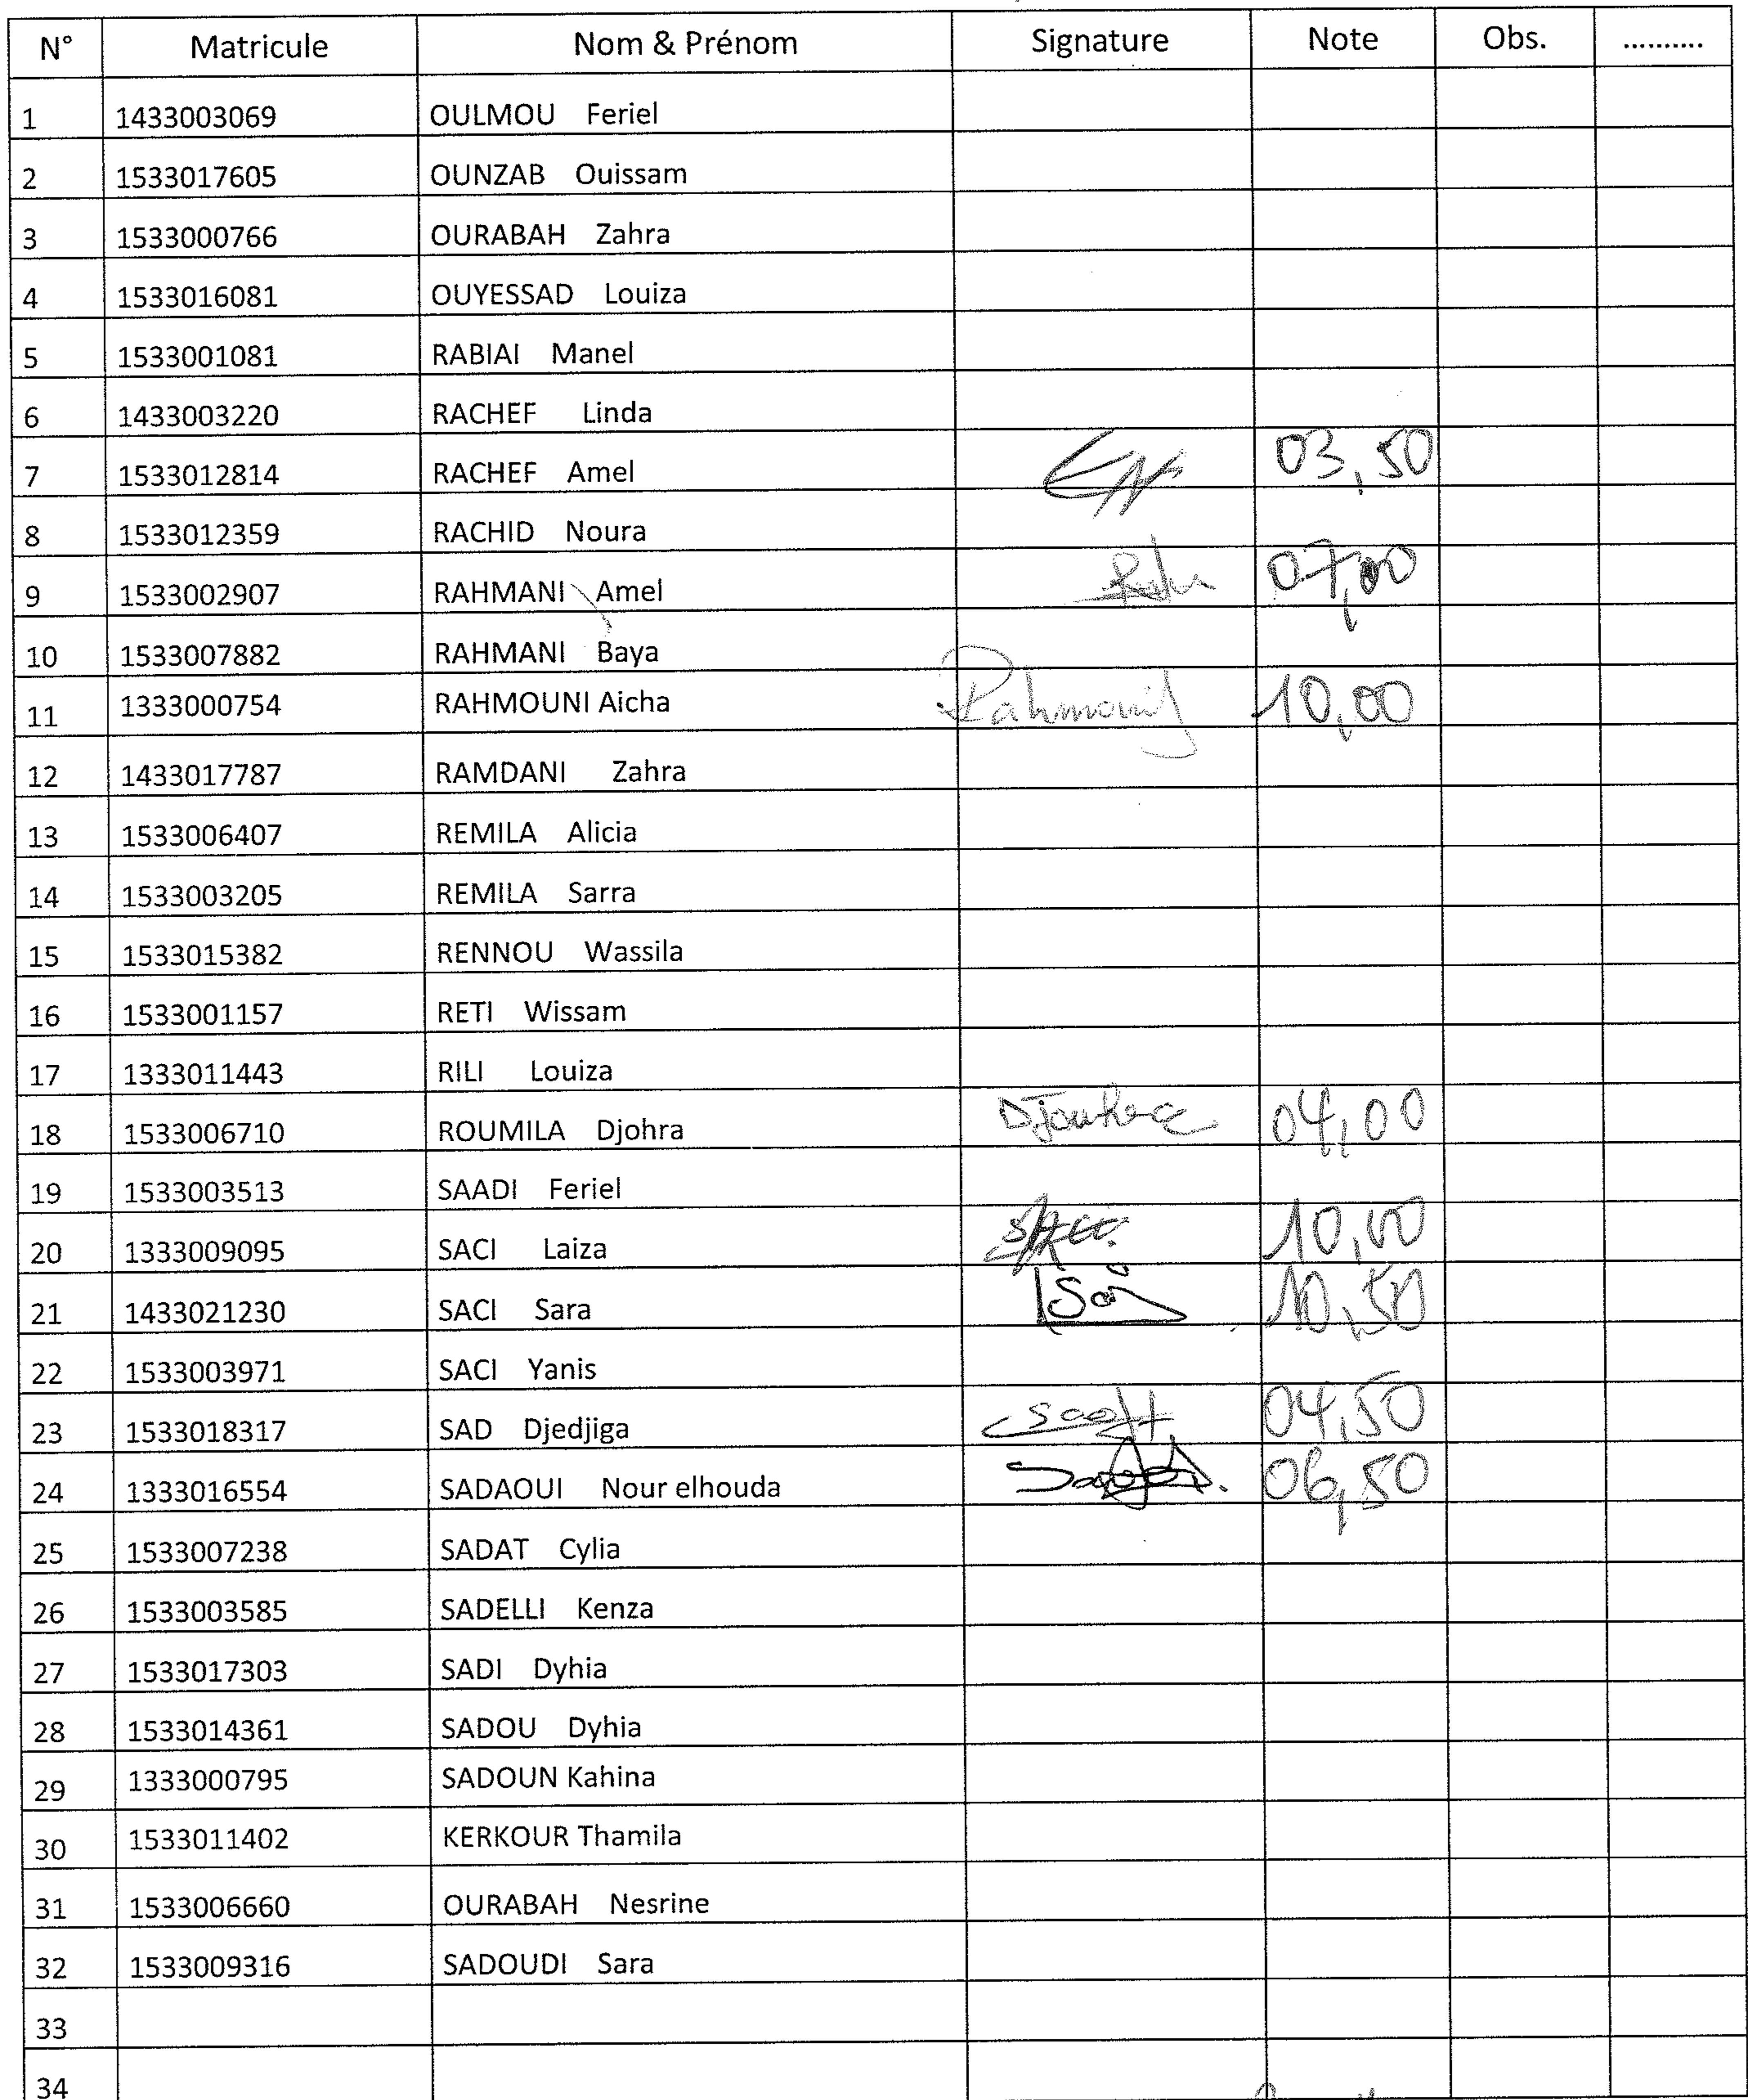 N° Matricule Nom & Prénom Signature Note Obs. ..........
1 1433003069 OULMOU Feriel
2 1533017605 OUNZAB Ouissam
3 1533000766 OURABAH Zahra
4 1533016081 OUYESSAD Louiza
5 1533001081 RABIAI Manel
6 1433003220 RACHEF Linda
7 1533012814 RACHEF Amel 03,50
8 1533012359 RACHID Noura
9 1533002907 RAHMANI Amel 07,00
10 1533007882 RAHMANI Baya
11 1333000754 RAHMOUNI Aicha Rahmouni 10,00
12 1433017787 RAMDANI Zahra
13 1533006407 REMILA Alicia
14 1533003205 REMILA Sarra
15 1533015382 RENNOU Wassila
16 1533001157 RETI Wissam
17 1333011443 RILI Louiza
18 1533006710 ROUMILA Djohra 04,00
19 1533003513 SAADI Feriel
20 1333009095 SACI Laiza 10,00
21 1433021230 SACI Sara 10,50
22 1533003971 SACI Yanis
23 1533018317 SAD Djedjiga 04,50
24 1333016554 SADAOUI Nour elhouda 06,50
25 1533007238 SADAT Cylia
26 1533003585 SADELLI Kenza
27 1533017303 SADI Dyhia
28 1533014361 SADOU Dyhia
29 1333000795 SADOUN Kahina
30 1533011402 KERKOUR Thamila
31 1533006660 OURABAH Nesrine
32 1533009316 SADOUDI Sara
33
34